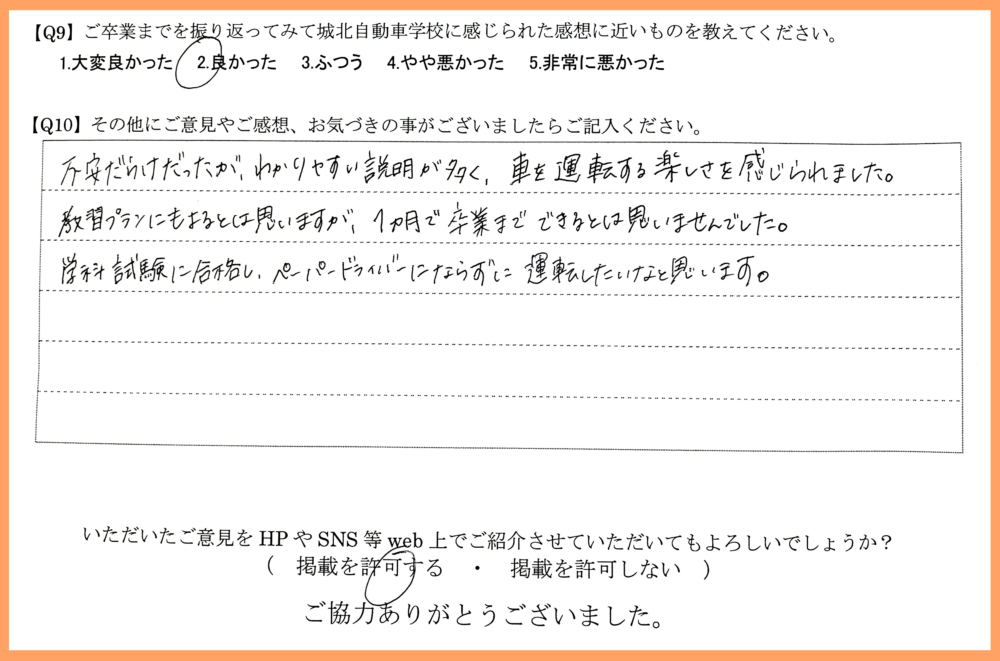 【Q9】ご卒業までを振り返ってみて城北自動車学校に感じられた感想に近いものを教えてください。
1.大変良かった 2.良かった 3.ふつう 4.やや悪かった 5.非常に悪かった
【Q10】その他にご意見やご感想、お気づきの事がございましたらご記入ください。
不安だらけだったが、わかりやすい説明が多く、車を運転する楽しさを感じられました。
教習プランにもよるとは思いますが、1カ月で卒業までできるとは思いませんでした。
学科試験に合格し、ペーパードライバーにならずに運転したいなと思います。
いただいたご意見をHPやSNS等web上でご紹介させていただいてもよろしいでしょうか？
（ 掲載を許可する ・ 掲載を許可しない ）
ご協力ありがとうございました。